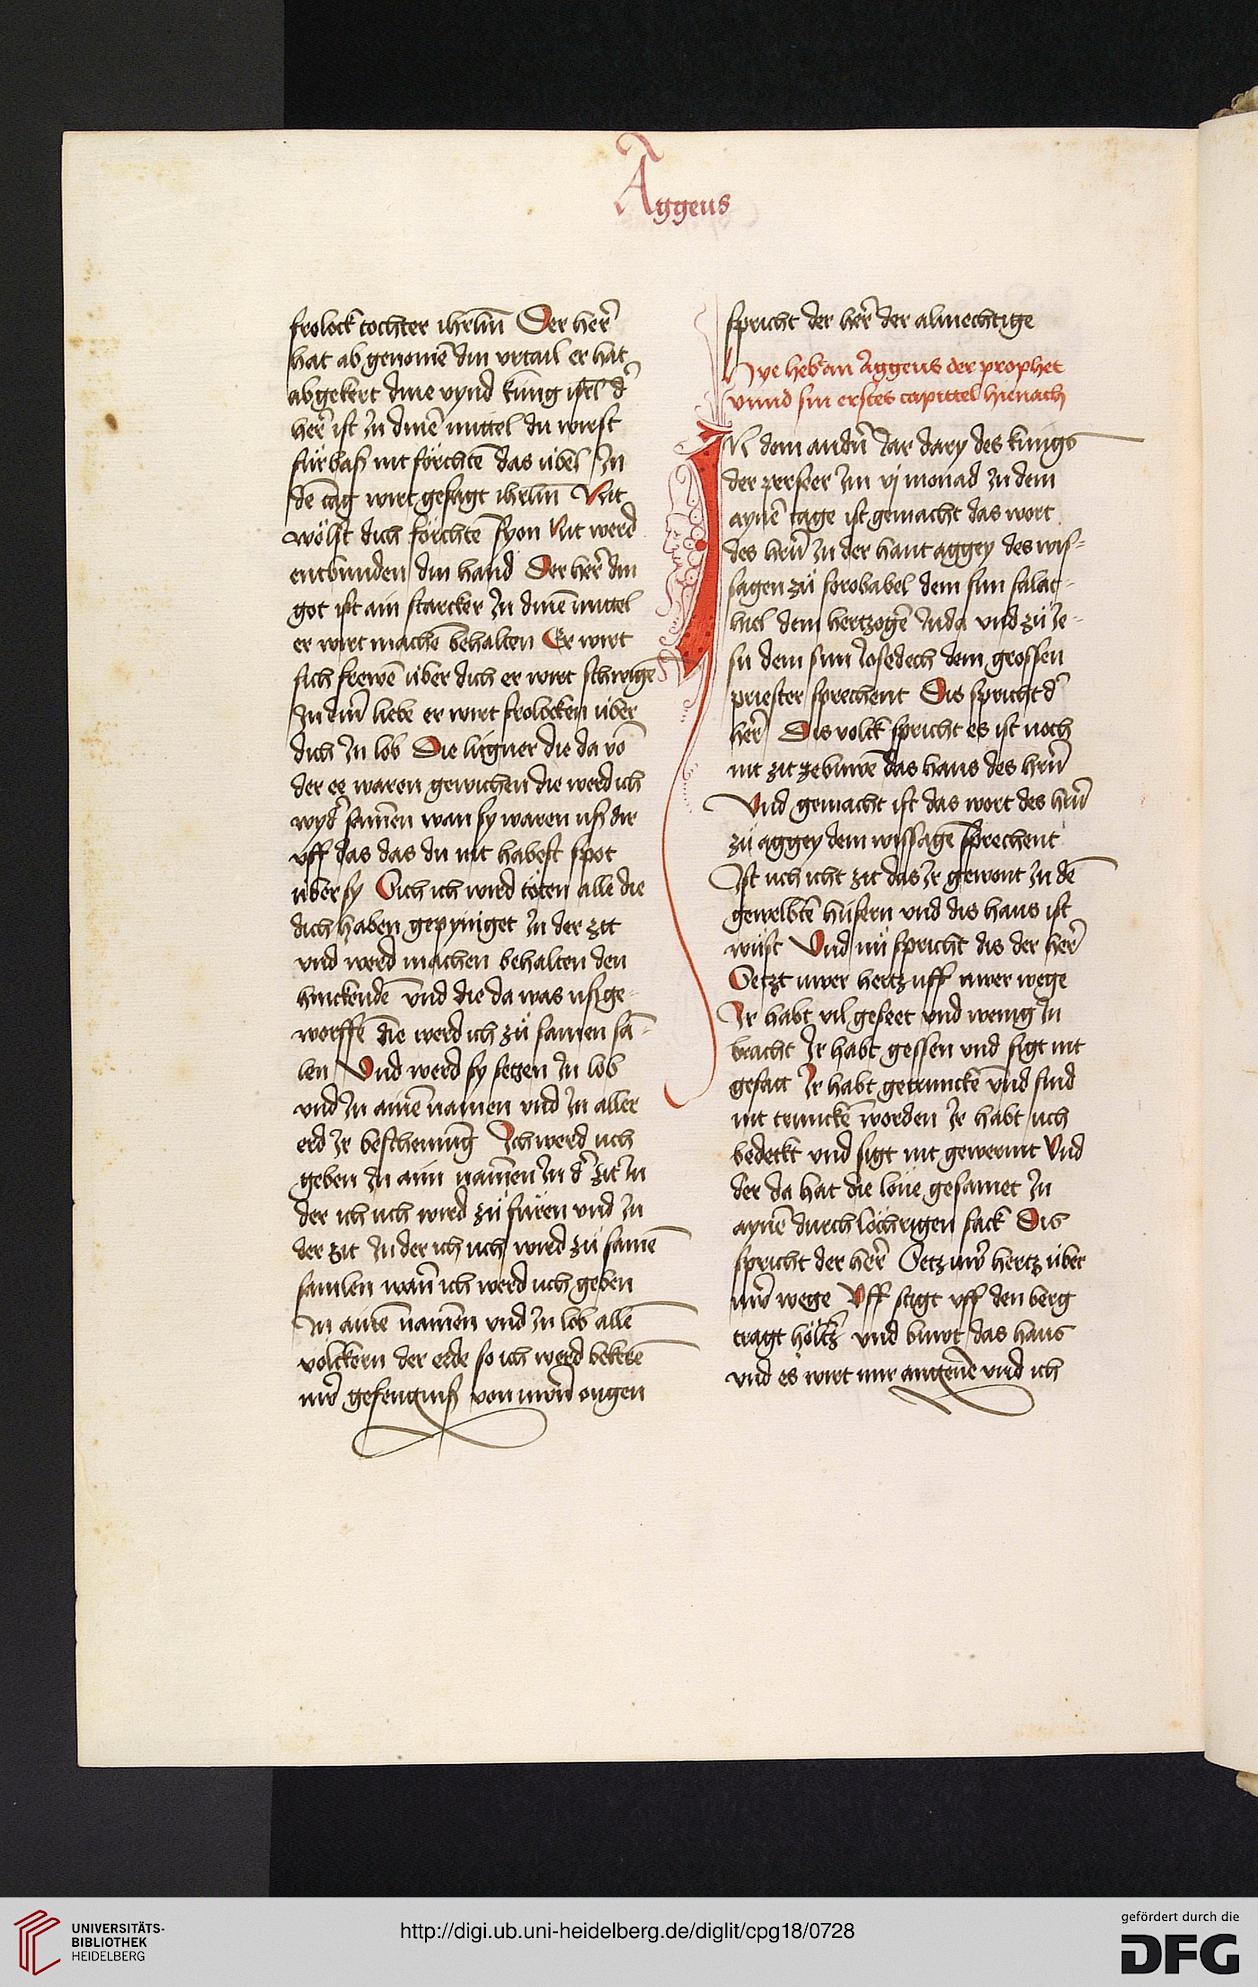 Aggeus
frolock tochter ihrlm̄ Der her̄
hat ab genomē din vrtail er hat
abgekert dine vynd kung isrl̄ d᷑
her̄ ist jn dinē mittel du wirst
fürbaß nit förchtē das übel Jn
dē tag wirt gesagt ihrlm̄ Nit
wölst dich förchtē syon Nit werd
entbunden din hand Der her̄ din
got ist ain starcker jn dinē mittel
er wirt machē behalten Er wirt
sich frewē über dich er wirt schwigē
jn din̄ liebe er wirt frolocken über
dich jn lob Die lügner die da vō
der ee waren gewichen die werd ich
wyd᷑ samen wan sy waren uß dir
vff das das du nit habest spot
über sy Sich ich wird töten alle die
dich haben gepyniget jn der zit
vnd werd machen behalten den
hinckendē vnd die da was ußge-
worffē die werd ich zů samen sā-
len Vnd werd sy setzen jn lob
vnd jn ainē namen vnd jn aller
erd jr beschemung Ich werd uch
geben jn ain namen jn d᷑ zit jn
der ich uch wird zů füren vnd jn
der zit jn der ich uch wird zů samē
samlen wan̄ ich werd uch geben
jn ainē namen vnd jn lob allē
volckern der erde so ich werd bekerē
uwr̄ gefengniß von uwrn̄ ougen
spricht der her̄ der almechtige
Hye heb an Aggeus der prophet
vnnd sin erstes capittel hienach
IN dem andn̄ Jar dary des kunigs
der perser Jm vj monad jn dem
aynē tage ist gemacht das wort
des hrn̄ jn der hant aggey des wis-
sagen zů sorobabel dem sun salat-
hiel dem hertzogē Juda vnd zů Je-
su dem sun Josedech dem grossen
priester sprechent Dis spricht d᷑
her̄ Dis volck spricht es ist noch
nit zit zebuwē das haus des hrn̄
Vnd gemacht ist das wort des hrn̄
zů aggey dem wissagē sprechent
Ist uch icht zit das jr gewont jn dē
gewelbtē hüsern vnd dis haus ist
wüst Vnd nů spricht dis der her̄
Setzt uwer hertz uff uwer wege
Ir habt vil geseet vnd wenig jn
bracht Ir habt gessen vnd sigt nit
gesatt Ir habt getrunckē vnd sind
nit trunckē worden Ir habt uch
bedeckt vnd sigt nit gewermt Vnd
der da hat die löne gesamet jn
aynē durch löchrigen sack Dis
spricht der her̄ Setz uwr̄ hertz über
uwr̄ wege Vff stigt vff den berg
tragt höltzr̄ vnd buwt das haus
vnd es wirt mir angenē vnd ich
UNIVERSITÄTS-
BIBLIOTHEK
HEIDELBERG
http://digi.ub.uni-heidelberg.de/diglit/cpg18/0728
gefördert durch die
DFG